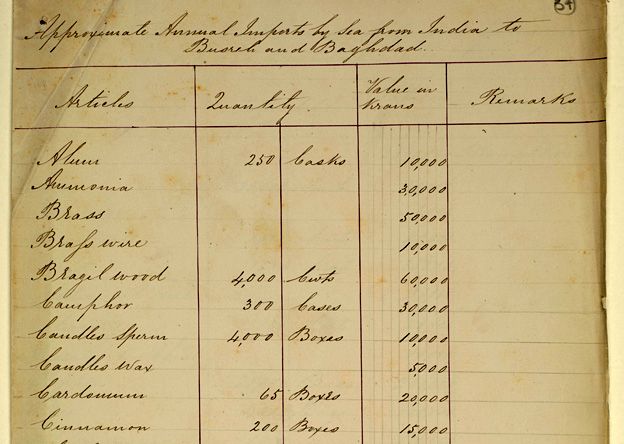 34
Approximate Annual Imports by Sea from India to
Busreh and Baghdad.
Articles Quantity Value in Krans Remarks
Alum 250 Casks 10,000
Ammonia 30,000
Brass 50,000
Brass wire 10,000
Brazil wood 4,000 Cwts 60,000
Camphor 300 Cases 30,000
Candles Sperm 4,000 Boxes 10,000
Candles Wax 5,000
Cardamum 65 Boxes 20,000
Cinnamon 200 Boxes 15,000